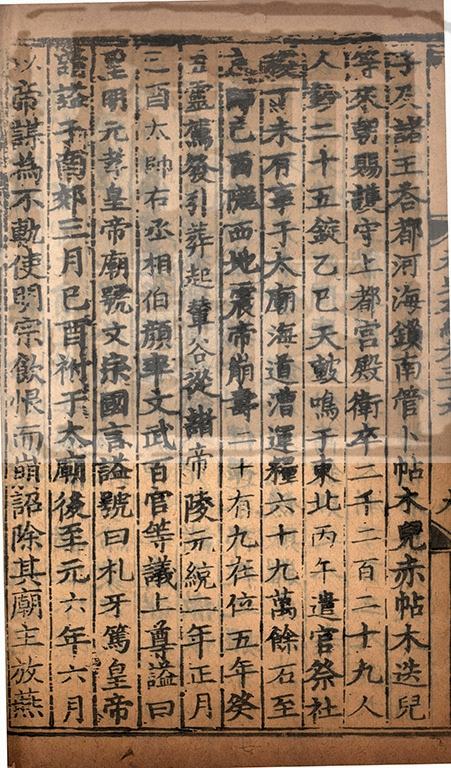 子及諸王荅都河海鎖南管卜帖木兒赤帖木迭兒
等來朝賜護守上都宮殿衛卒二千二百二十九人
人鈔二十五錠乙巳天鼓鳴于東北丙午遣官祭社
稷丁未有事于太廟海道漕運糧六十九萬餘石至
京師己酉隴西地震帝崩壽二十有九在位五年癸
丑靈駕發引葬起輦谷從諸帝陵元統二年正月
己酉太師右丞相伯顏率文武百官等議上尊謚曰
聖明元孝皇帝廟號文宗國言謚號曰札牙篤皇帝
請謚于南郊三月己酉祔于太廟後至元六年六月
以帝謀為不軌使明宗飲恨而崩詔除其廟主放燕